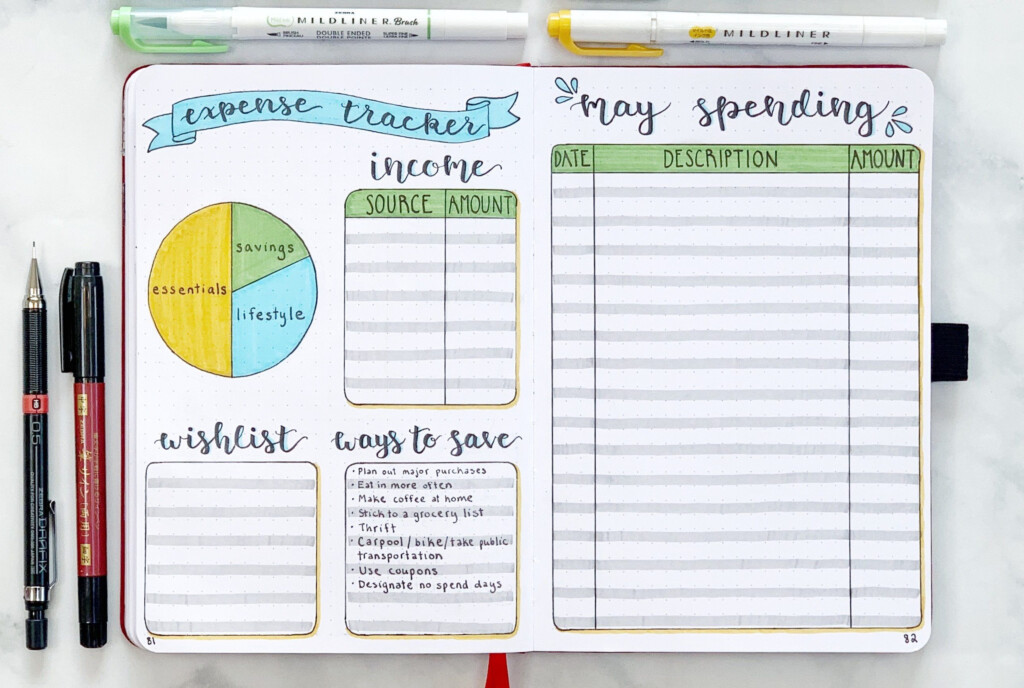 ZEBRA
MILDLINER Brush
BRUSH
DOUBLE ENDED
DOUBLE POINTE
SUPER FINE
MILDLINER
expense tracker
income
SOURCE AMOUNT
savings
essentials
lifestyle
wishlist
ways to save
· Plan out major purchases
· Eat in more often
· Make coffee at home
· Stick to a grocery list
· Thrift
· Carpool/bike/take public
transportation
· Use coupons
· Designate no spend days
81
may spending
DATE DESCRIPTION AMOUNT
82
0.5
ZEBRA DRAFIX